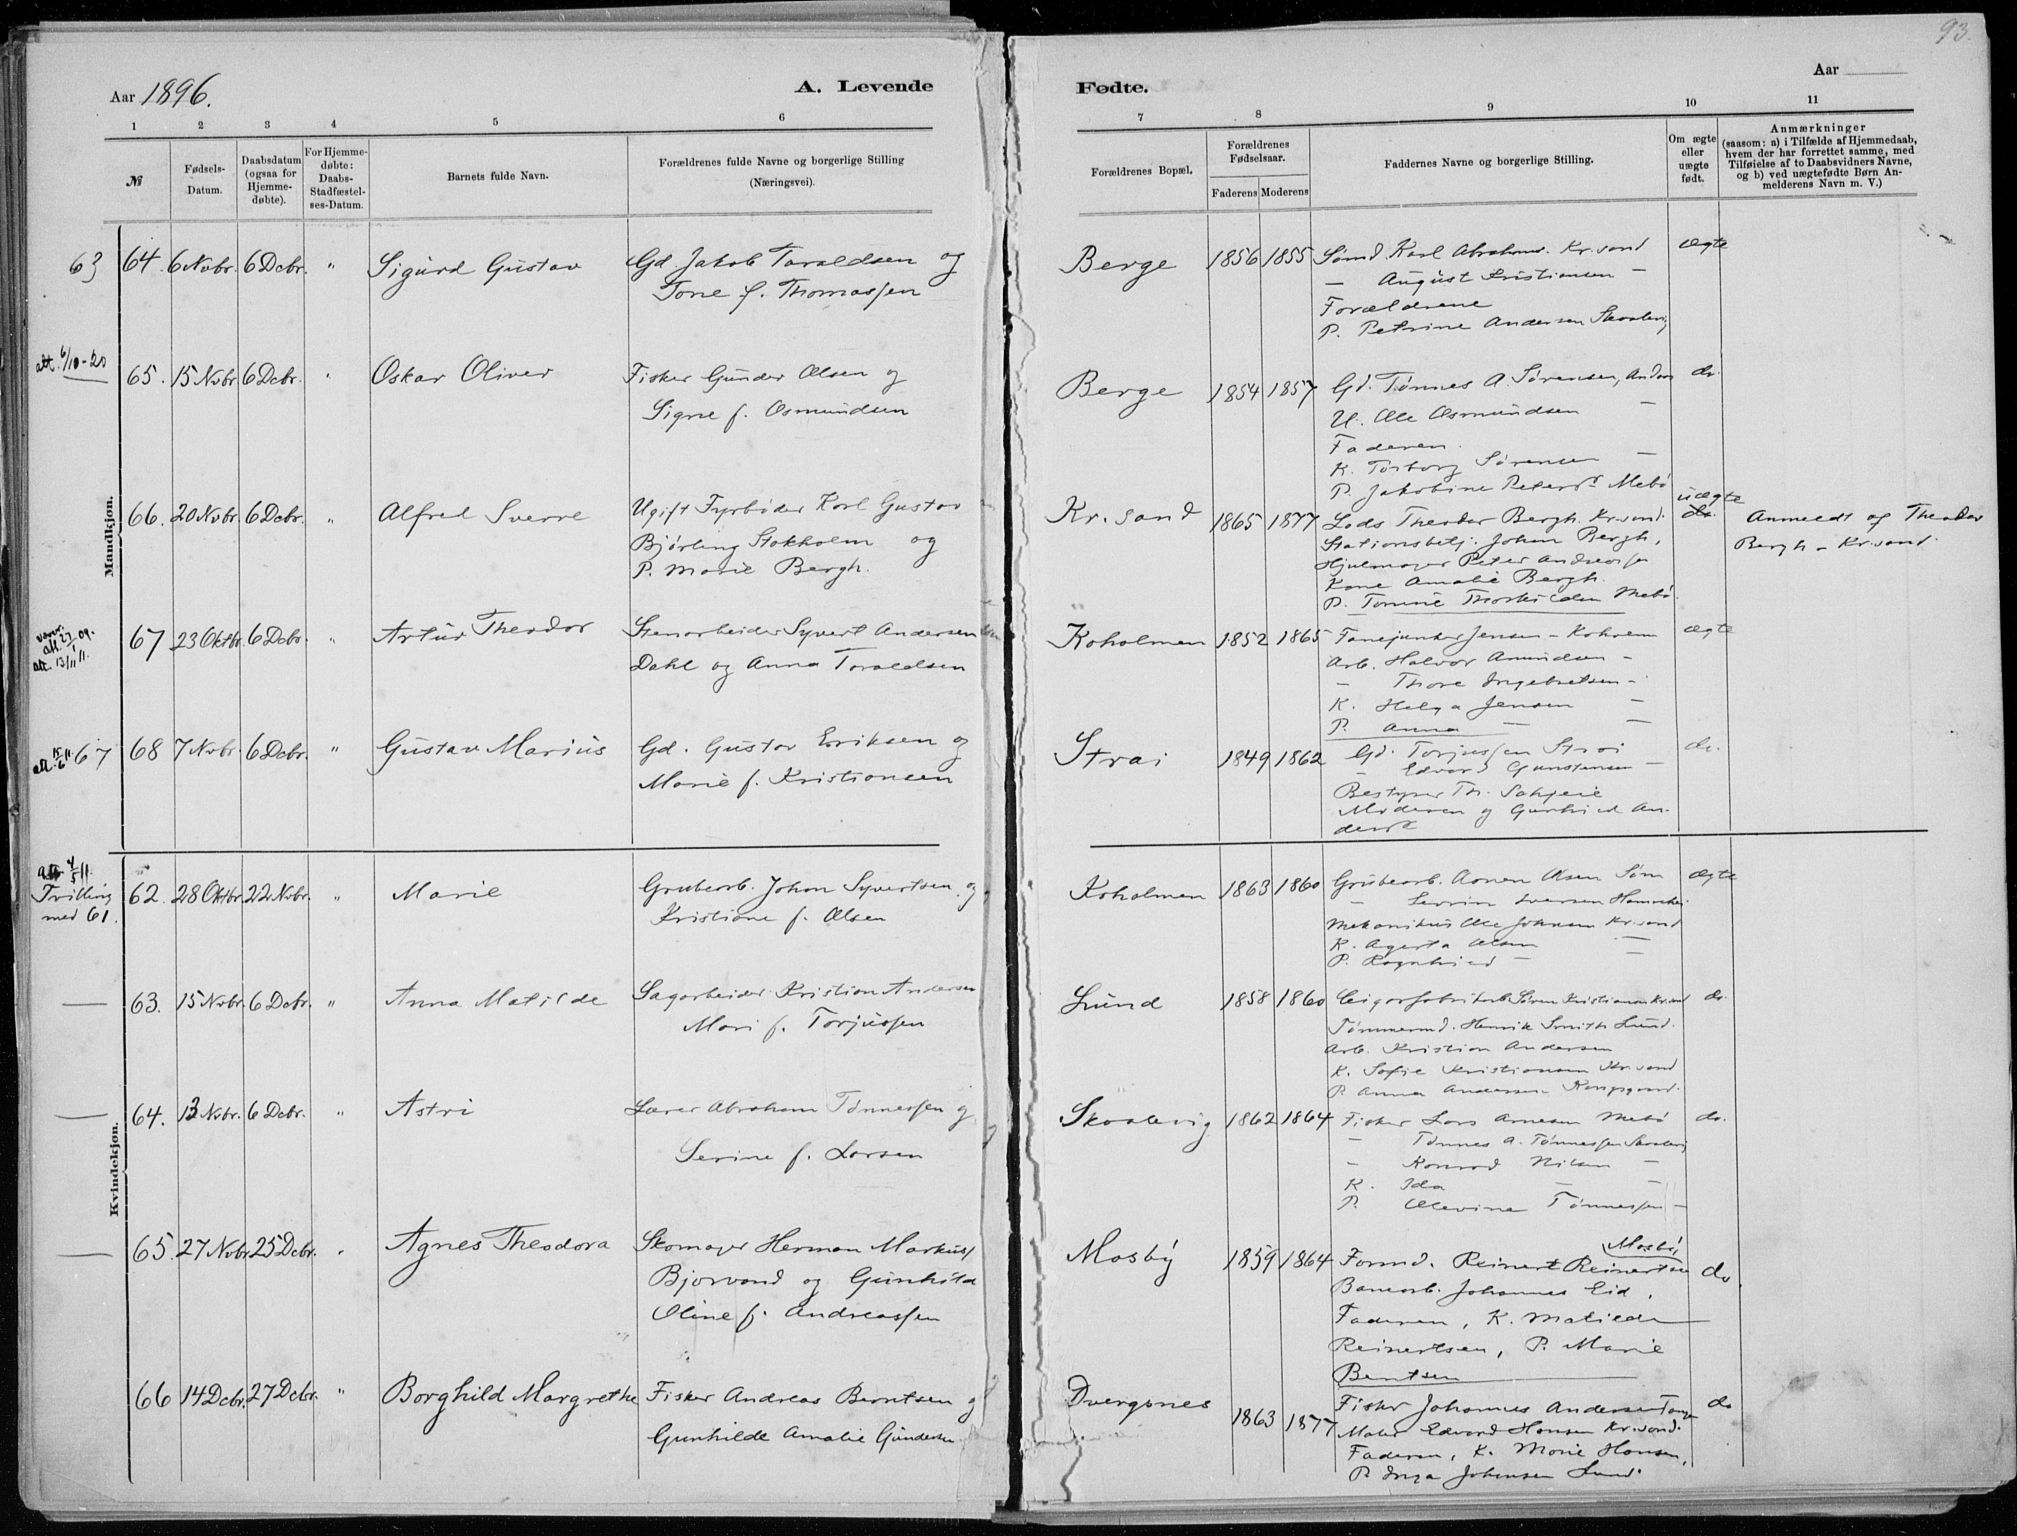 93.
Aar 1896.
A. Levende
Fødte.
Aar
1 2 3 4 5 6 7 8 9 10 11
№
Fødsels-
Datum.
Daabsdatum
(ogsaa for
Hjemme-
døbte).
For Hjemme-
døbte:
Daabs-
Stadfæstel-
ses-Datum.
Barnets fulde Navn.
Forældrenes fulde Navne og borgerlige Stilling
(Næringsvei).
Forældrenes Bopæl.
Forældrenes
Fødselsaar.
Faderens Moderens
Faddernes Navne og borgerlige Stilling.
Om ægte
eller
uægte
født.
Anmærkninger
(saasom: a) i Tilfælde af Hjemmedaab,
hvem der har forrettet samme, med
Tilføielse af to Daabsvidners Navne,
og b) ved uægtefødte Børn An-
melderens Navn m. V.)
Mandkjøn.
63 64. 6 Nvbr. 6 Dcbr. " Sigurd Gustav
Gd. Jakob Taraldsen og
Tone f. Thomassen
Berge 1856 1855
Sømd Karl Abrahams. Kr.sand
— August Kristiansen —
Forældrene
P. Petrine Andersen Skaalevig
ægte
att. 6/10-20
65. 15 Nvbr 6 Dcbr. " Oskar Oliver
Fisker Gunder Olsen og
Signe f. Osmundsen
Berge 1854 1857
Gd. Tønnes A. Sørensen,
U. Ole Osmundsen —
Faderen.
K. Torborg Sørensen —
P. Jakobine Peters Mebø
do.
66. 20 Nvbr. 6 Dcbr. " Alfred Sverre
Ugift Fyrbøder Karl Gustav
Bjørling Stokholm og
P. Marie Bergh.
Kr.sand 1865 1877
Lods Theodor Bergh. Kr.sand.
Stationsbetj. Johan Bergh,
Hjulmager Peter Andreassen
Kone Amalie Bergh.
P. Tomine Thorkildsen Mebø.
uægte
do.
Anmeldt af Theodor
Bergh – Kr.sand.
att. 13/11 11.
67 23 Oktbr. 6 Dcbr. " Artur Theodor
Stenarbeider Syvert Andersen
Dahl og Anna Taraldsen
Koholmen 1852 1865
Jensen – Koholm
Arb. Halvor Amundsen –
– Thore Ingebretsen –
K. Helga Jensen —
P. Anna — —
ægte
67 68 7 Nvbr. 6 Dcbr. " Gustav Marius
Gd. Gustav Eriksen og
Marie f. Kristiansen
Strai 1849 1862
Gd. Torjussen Strai
— Edvard Gunstensen —
Bestyrer Th.
Moderen og An-
ders
do.
Kvindekjøn.
Trilling
med 61.
62. 28 Oktbr. 22 Nvbr. " Marie
Grubearb. Johan Syvertsen og
Kristiane f. Olsen
Koholmen 1863 1860
Grubearb. Olsen Søm
— Severin Iversen
Mekanikus Ole Johnsen Kr.sand
K. Agerta Olsen —
P. Ragnhild — —
ægte
— 63. 15 Nvbr. 6 Dcbr. " Anna Matilde
Sagarbeider Kristian Andersen
Mari f. Torjussen
Lund 1858 1860
Cigarfabrikarb. Søren Kristiansen Kr.sand
Tømmermd. Henrik Smith Lund.
Arb. Kristian Andersen
K. Sofie Kristiansen Kr.sand
P. Anna Andersen Kongsgaard.
do.
— 64. 13 Nvbr. 6 Dcbr. " Astri
Lærer Abraham Tønnessen og
Serine f. Larsen
Skaalevig 1862 1864
Fisker Lars Arnesen Mebø
— Tønnes A. Tønnessen Skaalevig
— Konrad Nilsen —
K. Ida — —
P. Olevine Tønnessen —
do.
— 65. 27 Nvbr 25 Dcbr. " Agnes Theodora
Skomager Herman Markus
Bjorvand og Gunhilda
Oline f. Andreassen
Mosby 1859 1864
Mosby,
Formd. Reinert Reinertsen
Banearb. Johannes Eid,
Faderen, K. Matilde
Reinertsen, P. Marie
Bentsen
do.
66 14 Dcbr. 27 Dcbr. " Borghild Margrethe
Fisker Andreas Berntsen og
Gunhilde Amalie Gunders.
Dvergsnes 1863 1877
Fisker Johannes Andersen
Maler Edvard Hansen Kr.sand.
Faderen, K. Marie Hansen,
P. Inga Johansen Lund.
do